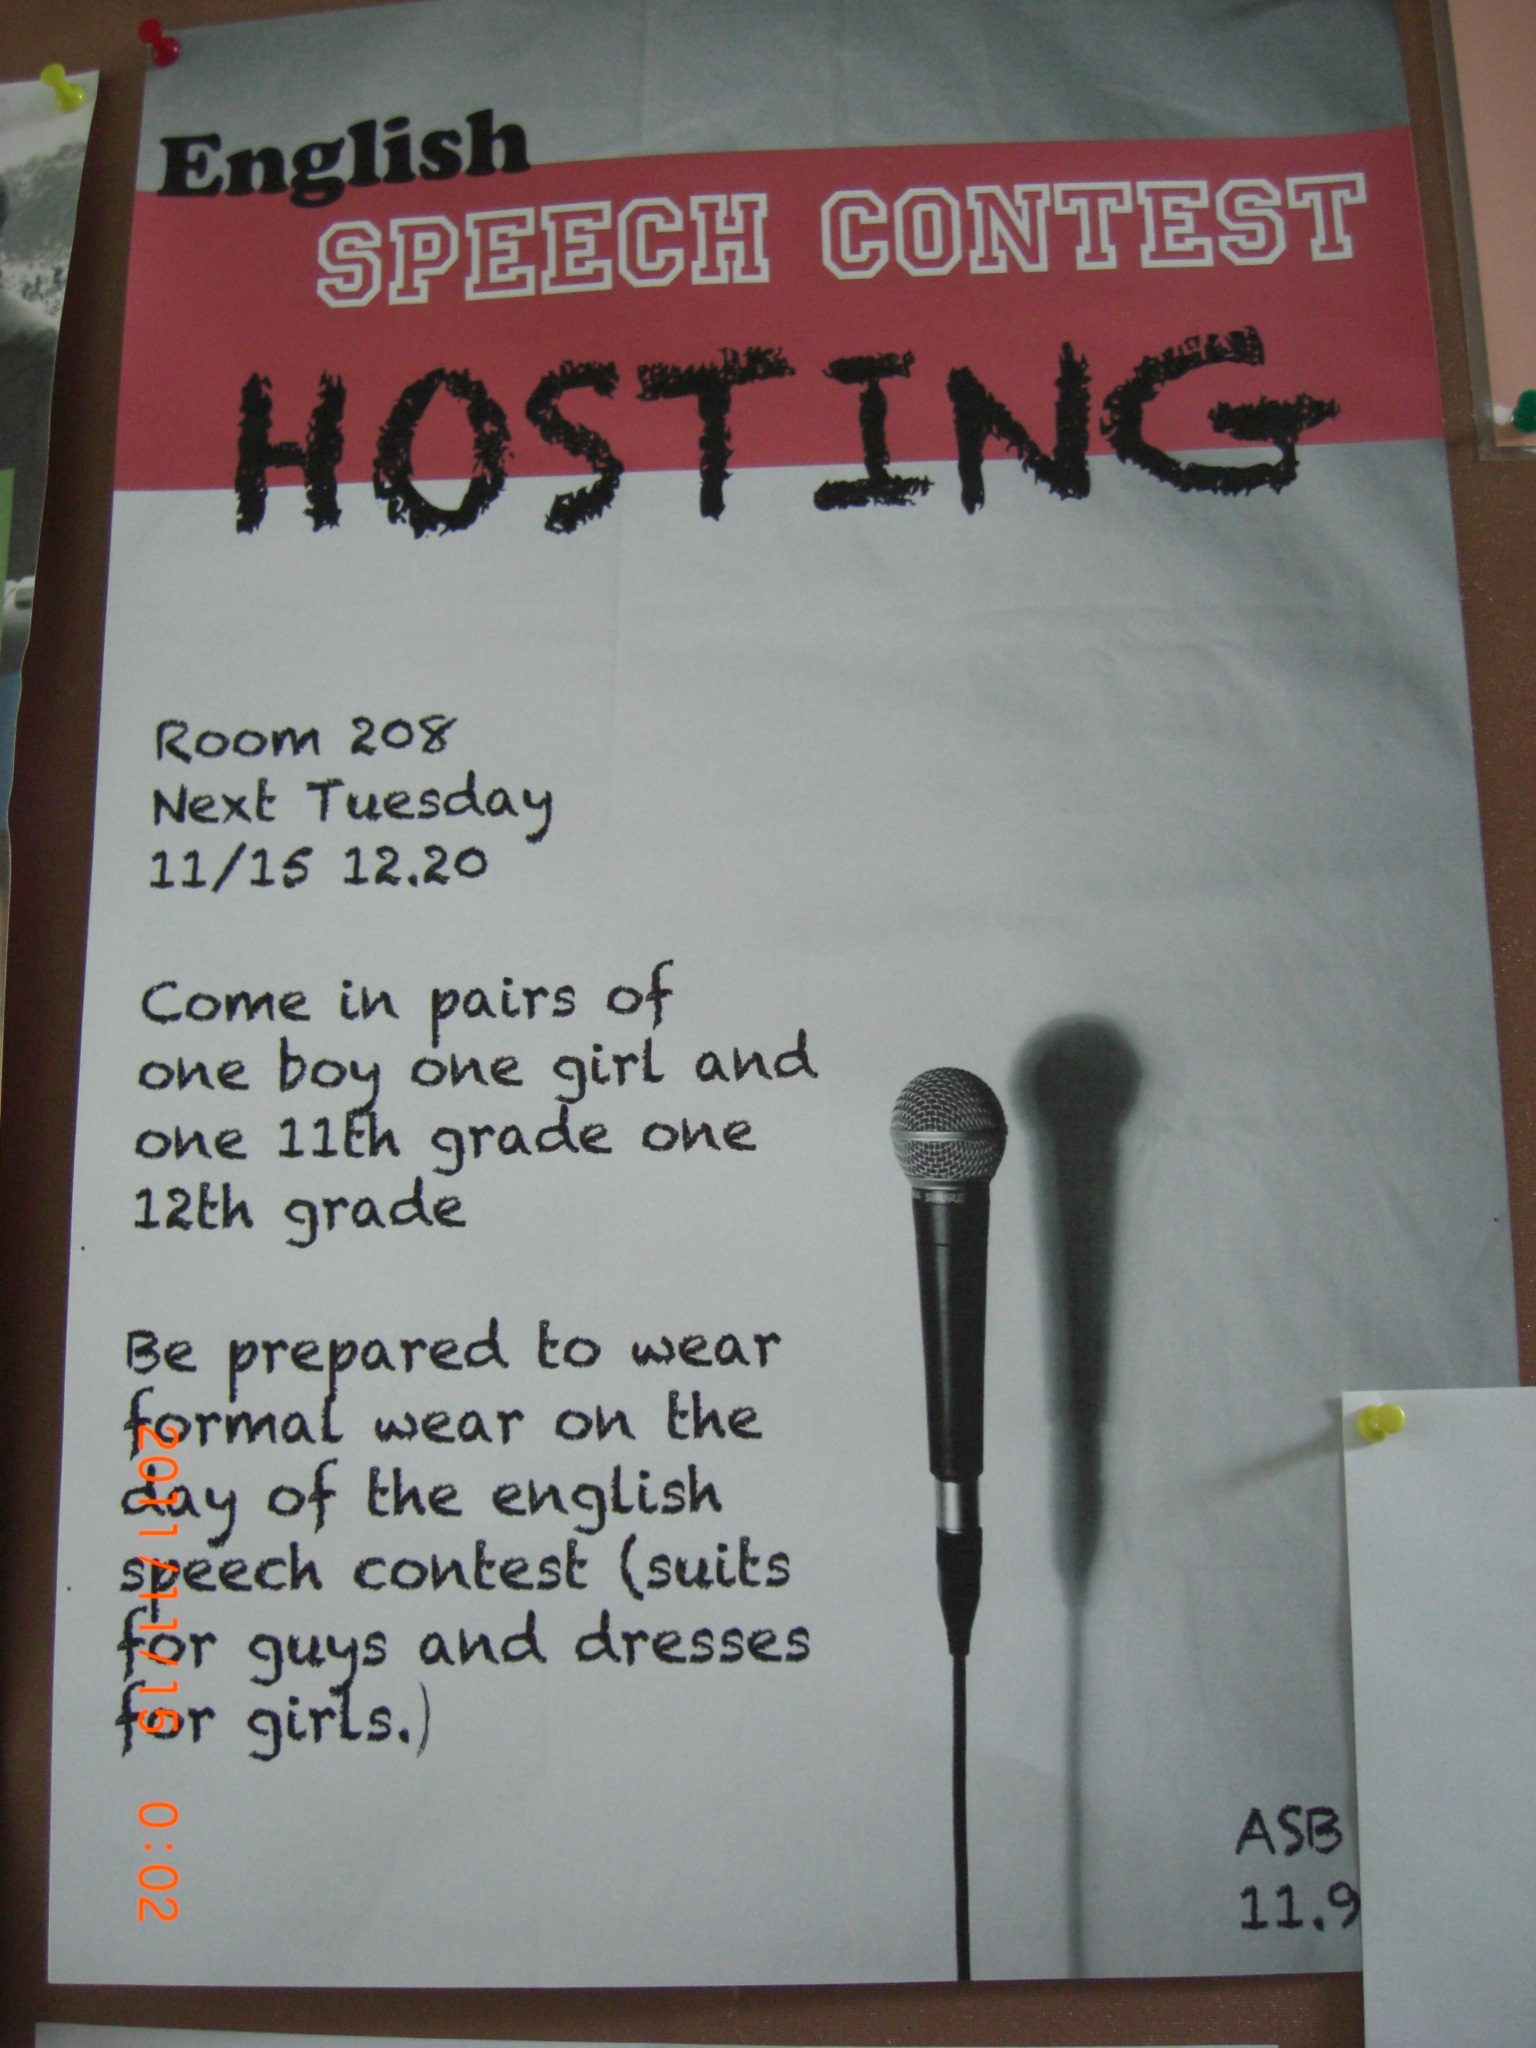 English
SPEECH CONTEST
HOSTING
Room 208
Next Tuesday
11/15 12.20
Come in pairs of
one boy one girl and
one 11th grade one
12th grade
Be prepared to wear
formal wear on the
day of the english
speech contest (suits
for guys and dresses
for girls.)
SHURE
ASB
11.9
2011/11/15 0:02